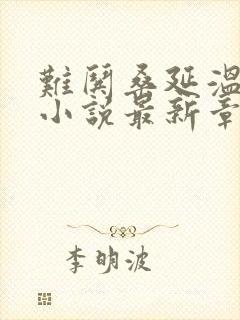 難鬨桑延溫
小説最新章
李明波